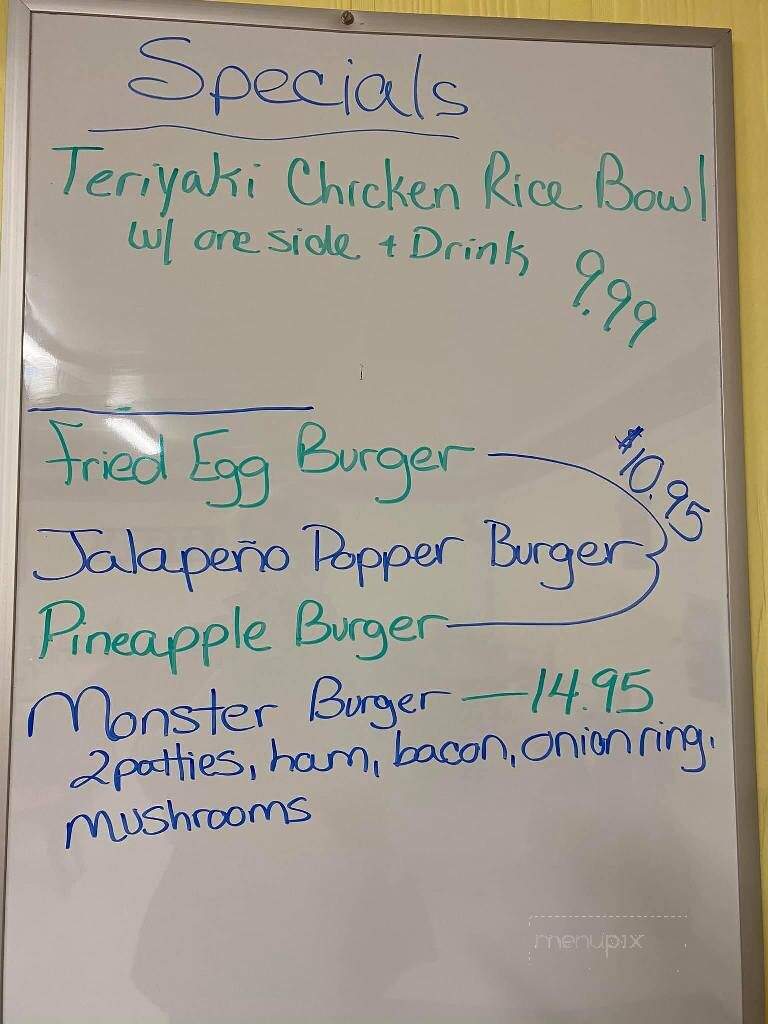 Specials
Teriyaki Chicken Rice Bowl
w/ one side + Drink
9.99
Fried Egg Burger
$10.95
Jalapeño Popper Burger
Pineapple Burger
Monster Burger — 14.95
2 patties, ham, bacon, onion ring,
mushrooms
menupix